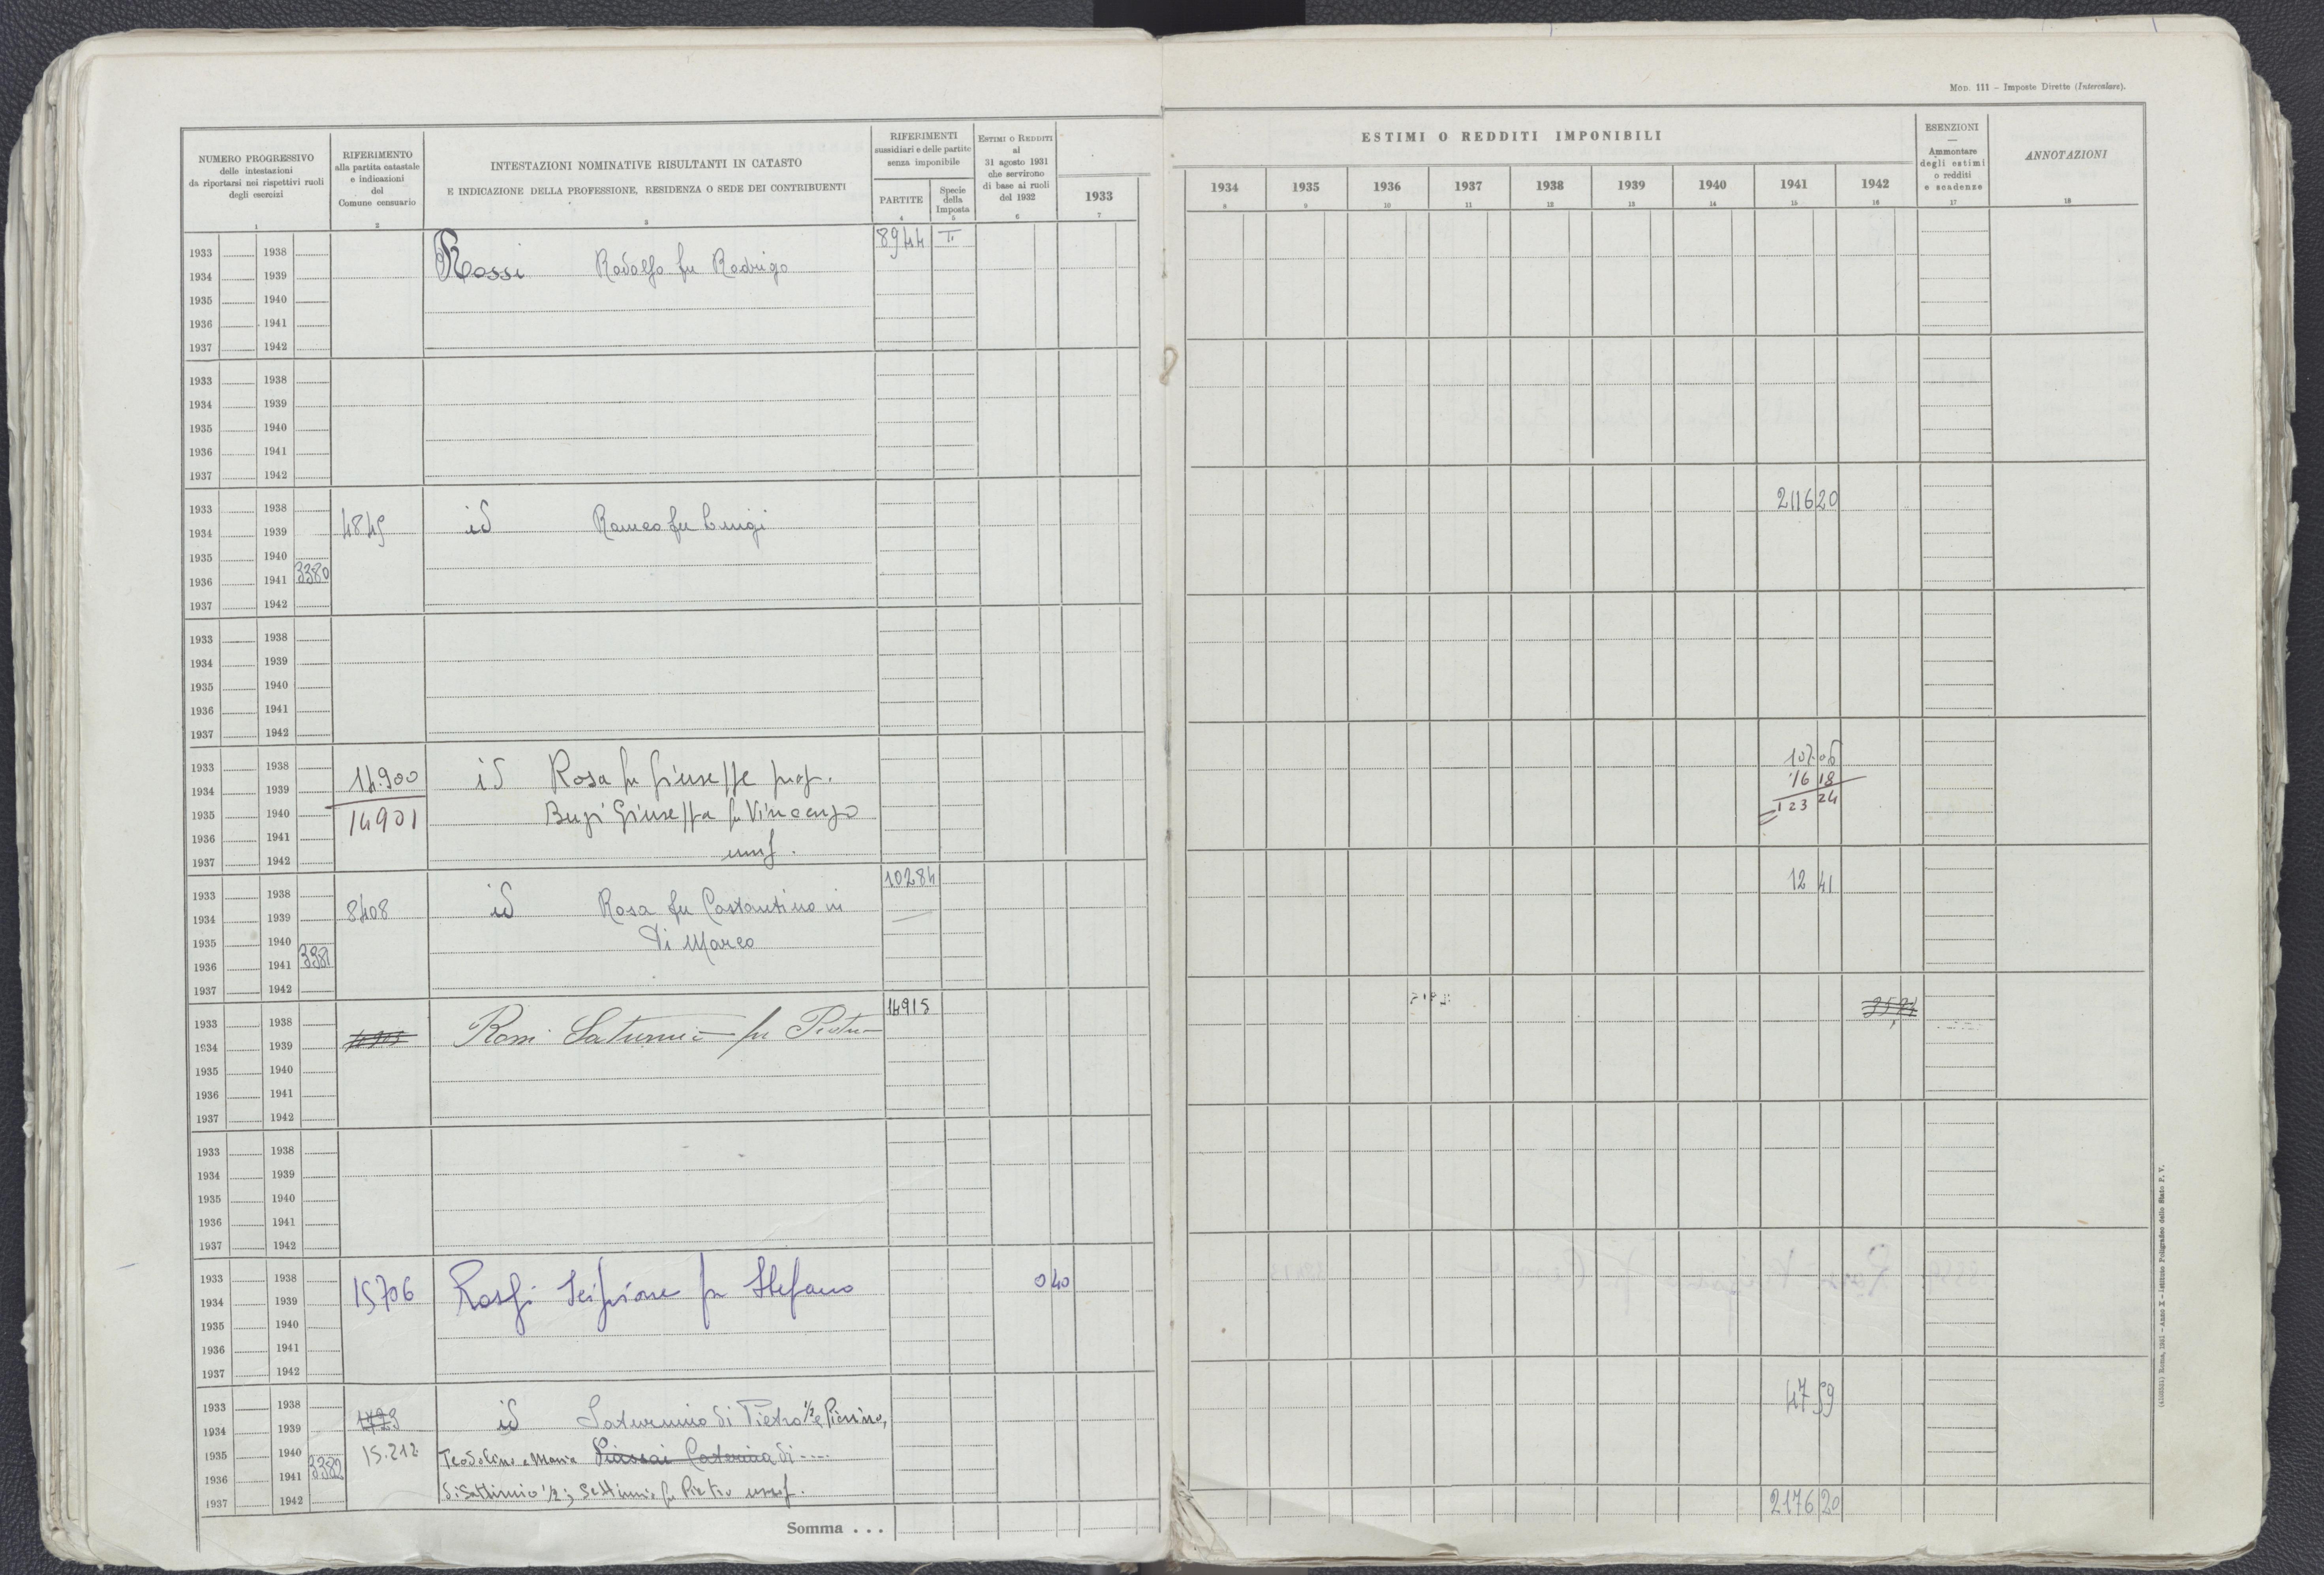 Mod. 111 – Imposte Dirette (Intercalare).
NUMERO PROGRESSIVO
delle intestazioni
da riportarsi nei rispettivi ruoli
degli esercizi
1
RIFERIMENTO
alla partita catastale
e indicazioni
del
Comune censuario
2
INTESTAZIONI NOMINATIVE RISULTANTI IN CATASTO
E INDICAZIONE DELLA PROFESSIONE, RESIDENZA O SEDE DEI CONTRIBUENTI
3
RIFERIMENTI
sussidiari e delle partite
senza imponibile
PARTITE
4
Specie
della
Imposta
5
Estimi o Redditi
al
31 agosto 1931
che servirono
di base ai ruoli
del 1932
6
1933
7
ESTIMI O REDDITI IMPONIBILI
1934 1935 1936 1937 1938 1939 1940 1941 1942
8 9 10 11 12 13 14 15 16
ESENZIONI
—
Ammontare
degli estimi
o redditi
e scadenze
17
ANNOTAZIONI
18
8944 T.
1933 1938
Rossi Rodolfo fu Rodrigo
1934 1939
1935 1940
1936 1941
1937 1942
1933 1938
1934 1939
1935 1940
1936 1941
1937 1942
1933 1938 2116 20
1934 1939 4849 id Romeo fu Luigi
1935 1940
1936 1941 3380
1937 1942
1933 1938
1934 1939
1935 1940
1936 1941
1937 1942
1933 1938 14.900 id Rosa fu Giuseppe prop. 107.06
1934 1939 16 18
1935 1940 14901 Giuseppa fu Vincenzo 123 24
1936 1941
1937 1942 usuf.
10284 12 41
1933 1938
1934 1939 8408 id Rosa fu Costantino in
1935 1940 Di Marco
1936 1941 3381
1937 1942
14915
1933 1938
1934 1939 Rossi Saturnino fu Pietro
1935 1940
1936 1941
1937 1942
1933 1938
1934 1939
1935 1940
1936 1941
1937 1942
1933 1938 15706 Rossi Scipione fu Stefano 0 40
1934 1939
1935 1940
1936 1941
1937 1942
1933 1938 47 59
1934 1939 id Saturnino di Pietro 1/2 e Pierino,
1935 1940 15.212 Teodolino e Maria Caterina di ....
1936 1941 3382
1937 1942 di Settimio 1/2; Settimio fu Pietro usuf.
2176 20
Somma . . .
Roma, 1931 – Anno X – Istituto Poligrafico dello Stato P. V.